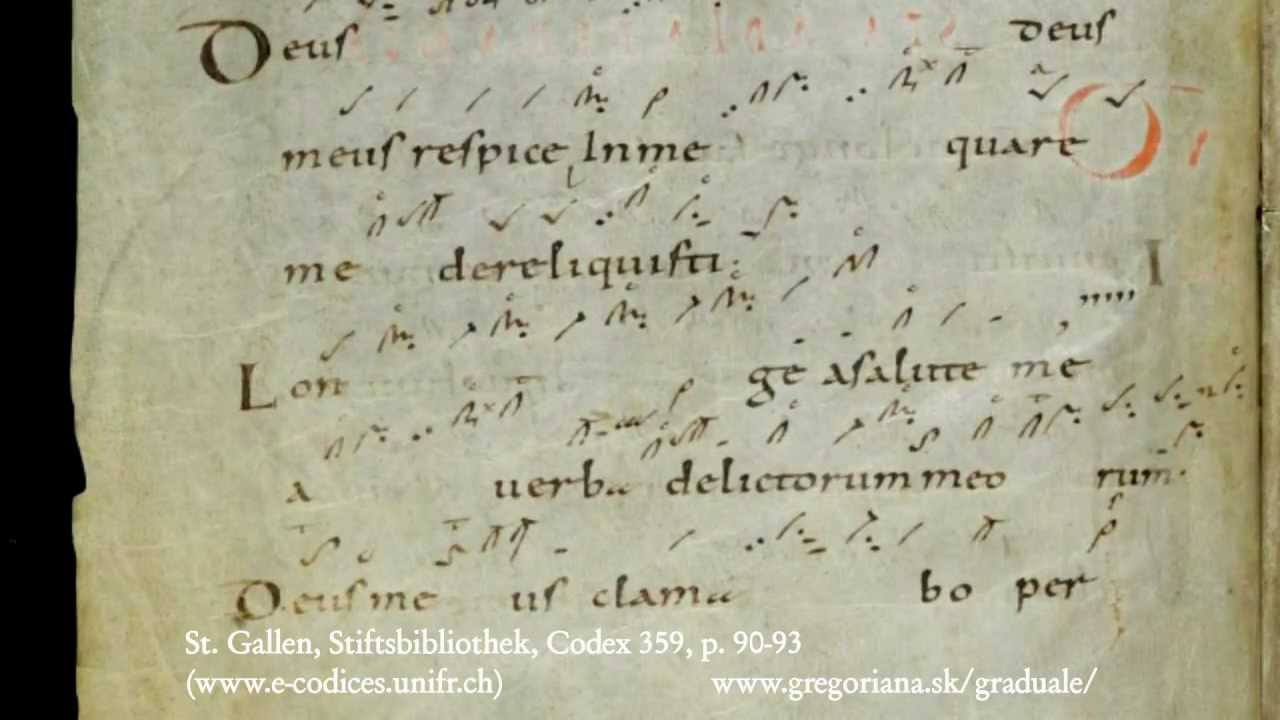 Deus deus
meus respice Inme quare
me dereliquisti:
Lon ge asalute me
a verba delictorum meo rum
Deus me us clama bo per
St. Gallen, Stiftsbibliothek, Codex 359, p. 90-93
(www.e-codices.unifr.ch) www.gregoriana.sk/graduale/